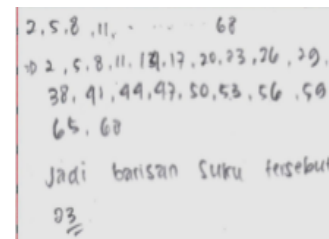 2,5,8,11, . . . . . 68
⇒ 2, 5, 8, 11, 14, 17, 20, 23, 26, 29,
38, 41, 44, 47, 50, 53, 56, 59
65, 68
Jadi barisan Suku tersebut
23